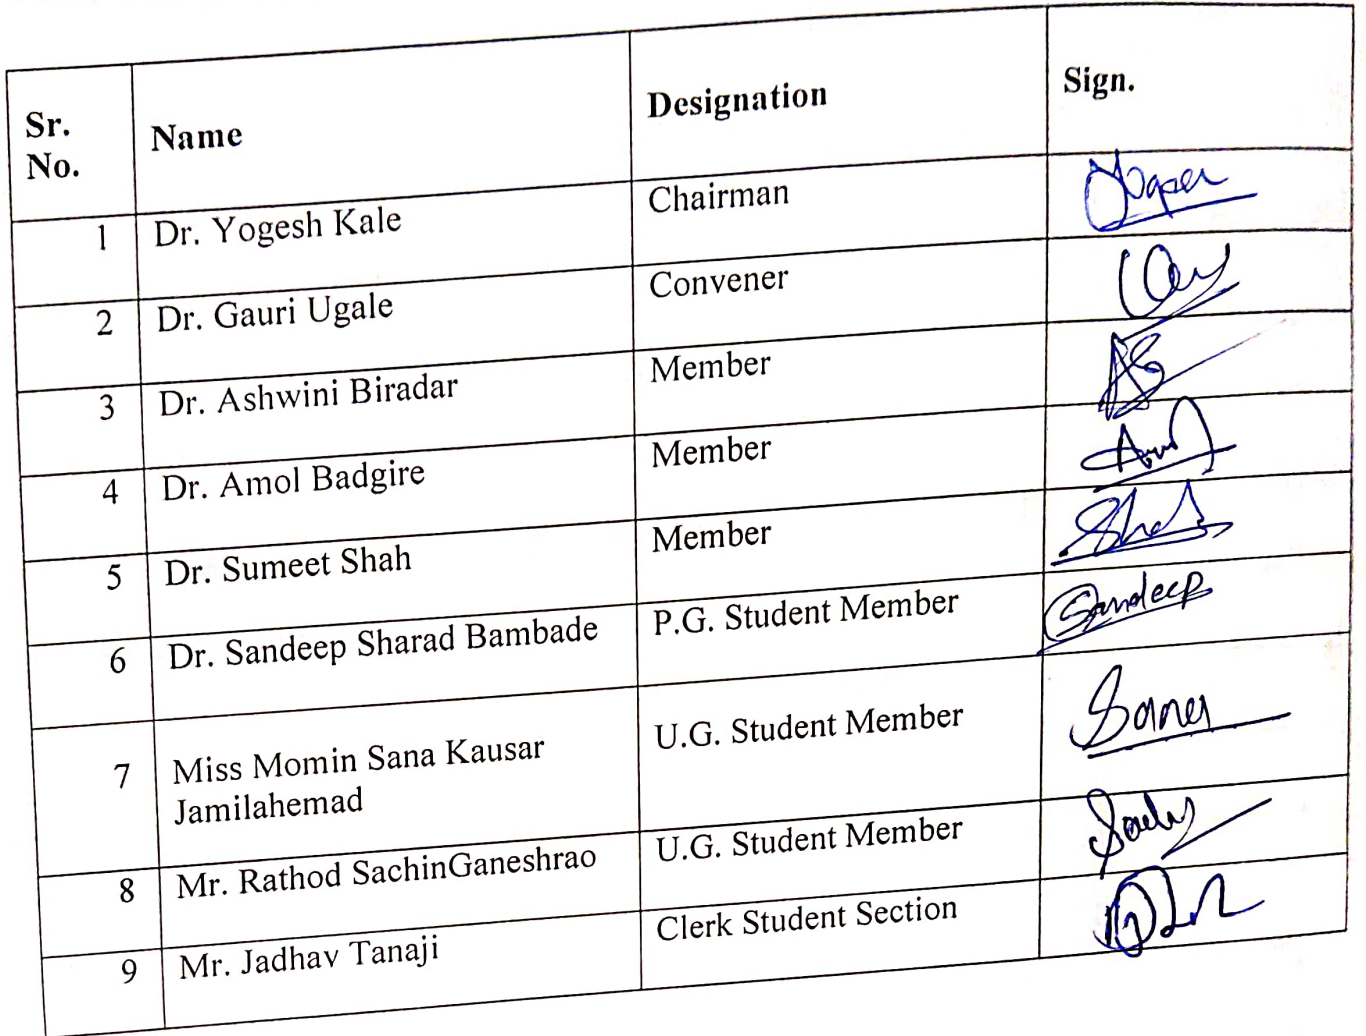 Sr.
No.
Name
Designation
Sign.
1 Dr. Yogesh Kale Chairman
2 Dr. Gauri Ugale Convener
3 Dr. Ashwini Biradar Member
4 Dr. Amol Badgire Member
5 Dr. Sumeet Shah Member Shah
6 Dr. Sandeep Sharad Bambade P.G. Student Member Sandeep
7 Miss Momin Sana Kausar
Jamilahemad
U.G. Student Member
8 Mr. Rathod SachinGaneshrao U.G. Student Member
9 Mr. Jadhav Tanaji Clerk Student Section